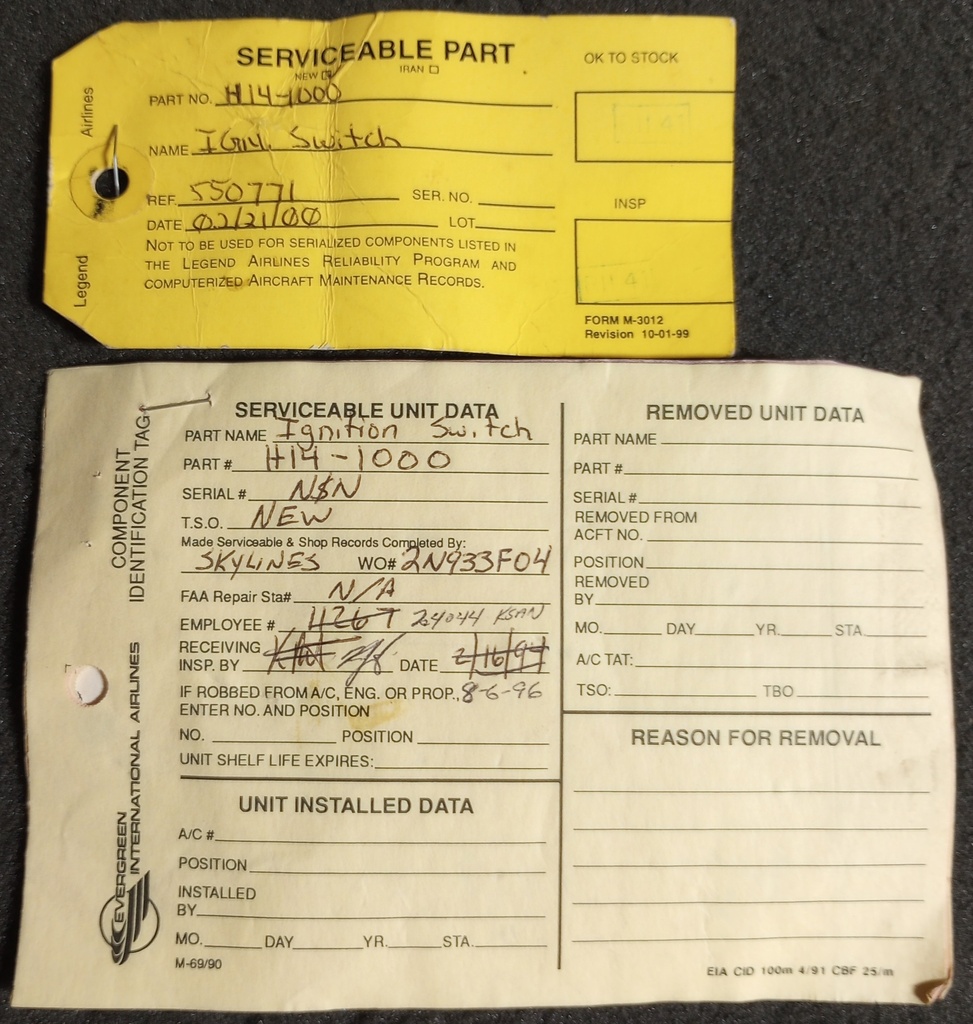 SERVICEABLE PART
NEW IRAN
OK TO STOCK
PART NO. H14-1000
NAME IGN. Switch
REF. 550771 SER. NO.
DATE 02/21/00 LOT
INSP
NOT TO BE USED FOR SERIALIZED COMPONENTS LISTED IN
THE LEGEND AIRLINES RELIABILITY PROGRAM AND
COMPUTERIZED AIRCRAFT MAINTENANCE RECORDS.
FORM M-3012
Revision 10-01-99
Legend Airlines
COMPONENT
IDENTIFICATION TAG
EVERGREEN
INTERNATIONAL AIRLINES
SERVICEABLE UNIT DATA
PART NAME Ignition Switch
PART # H14-1000
SERIAL # NSN
T.S.O. NEW
Made Serviceable & Shop Records Completed By:
SKYLINES WO# 2N933F04
FAA Repair Sta# N/A
EMPLOYEE # 4267 24044 KSAN
RECEIVING
INSP. BY DATE 2/16/94
IF ROBBED FROM A/C, ENG. OR PROP., 8-6-96
ENTER NO. AND POSITION
NO. POSITION
UNIT SHELF LIFE EXPIRES:
UNIT INSTALLED DATA
A/C #
POSITION
INSTALLED
BY
MO. DAY YR. STA.
M-69/90
REMOVED UNIT DATA
PART NAME
PART #
SERIAL #
REMOVED FROM
ACFT NO.
POSITION
REMOVED
BY
MO. DAY YR. STA.
A/C TAT:
TSO: TBO
REASON FOR REMOVAL
EIA CID 100m 4/91 CBF 25/m